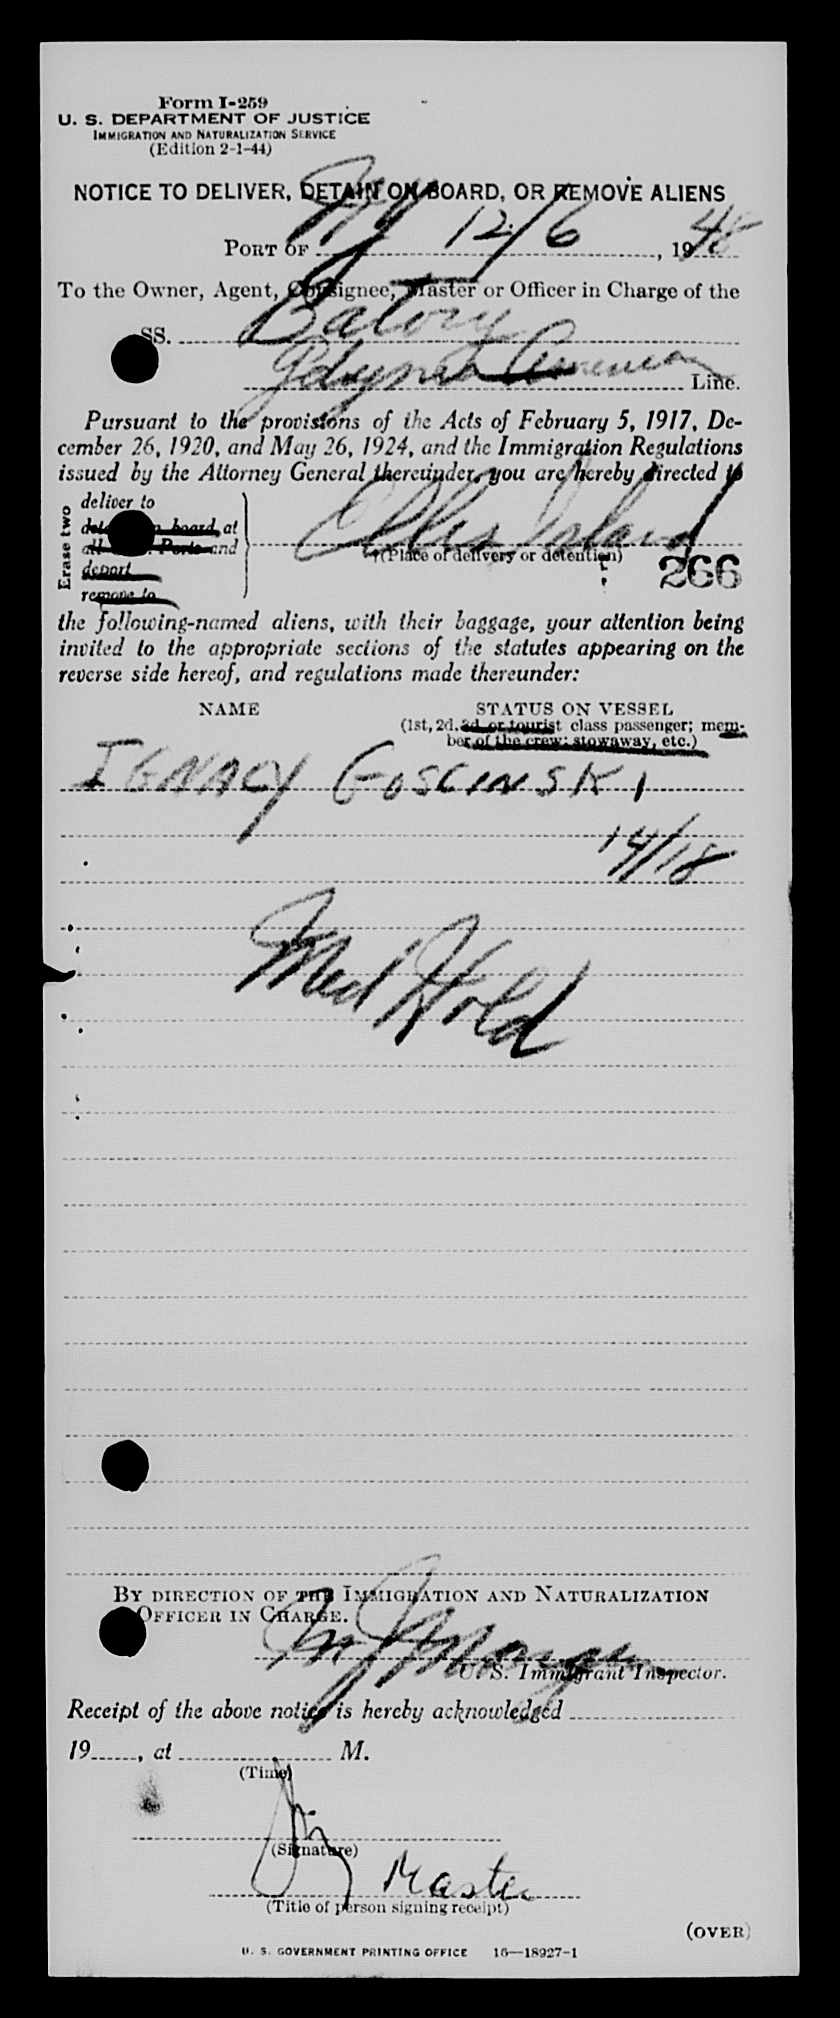 Form I-259
U. S. DEPARTMENT OF JUSTICE
IMMIGRATION AND NATURALIZATION SERVICE
(Edition 2-1-44)
NOTICE TO DELIVER, DETAIN ON BOARD, OR REMOVE ALIENS
PORT OF NY 12/6, 1948
To the Owner, Agent, Consignee, Master or Officer in Charge of the
SS. Batory
Gdynia America Line.
Pursuant to the provisions of the Acts of February 5, 1917, De-
cember 26, 1920, and May 26, 1924, and the Immigration Regulations
issued by the Attorney General thereunder, you are hereby directed to
Erase two
deliver to
board at
Ports and
deport
remove to
Ellis Island
(Place of delivery or detention)
266
the following-named aliens, with their baggage, your attention being
invited to the appropriate sections of the statutes appearing on the
reverse side hereof, and regulations made thereunder:
NAME STATUS ON VESSEL
(1st, 2d, 3d or tourist class passenger; mem-
ber of the crew; stowaway, etc.)
IGNACY GOSCINSKI
14/18
Med Hold
BY DIRECTION OF THE IMMIGRATION AND NATURALIZATION
OFFICER IN CHARGE.
U. S. Immigrant Inspector.
Receipt of the above notice is hereby acknowledged
19, at M.
(Time)
(Signature)
Master
(Title of person signing receipt)
(OVER)
U. S. GOVERNMENT PRINTING OFFICE 16—18927-1